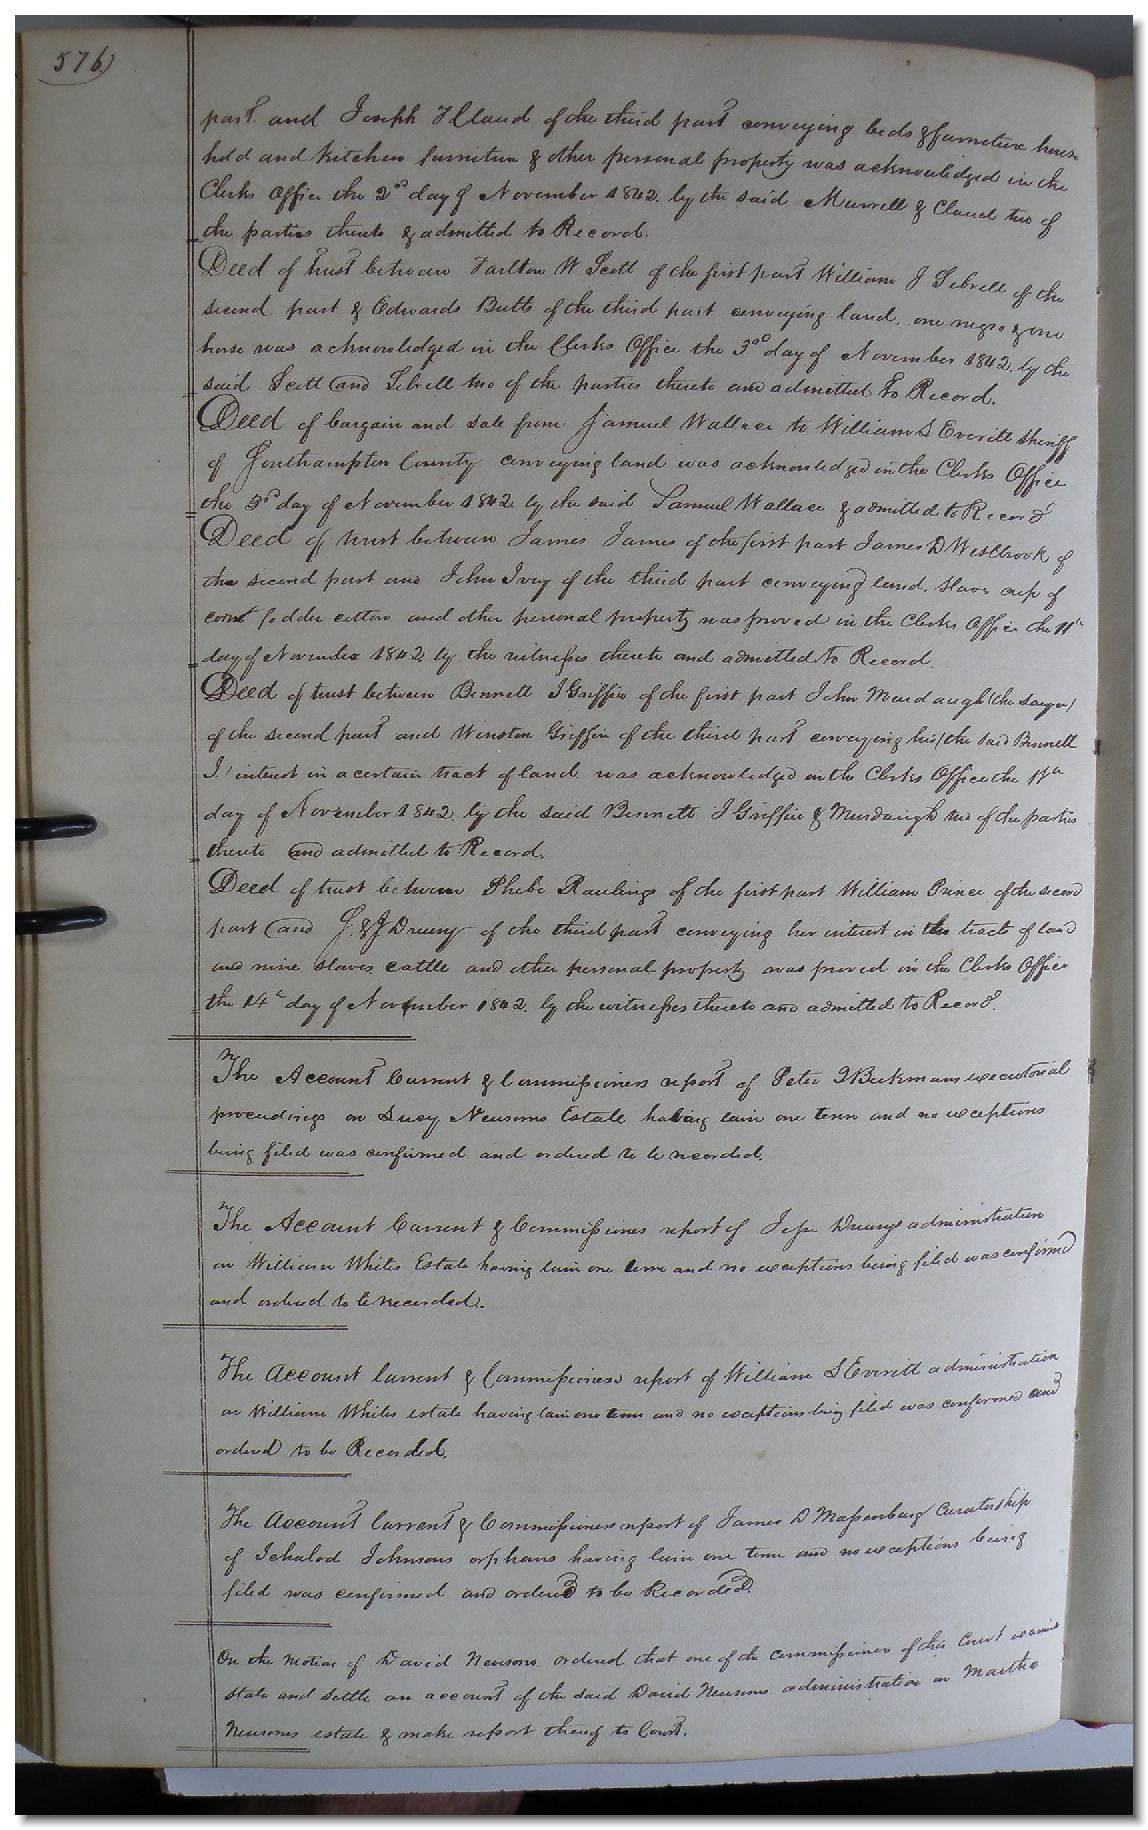 576
part and Joseph T Claud of the third part conveying beds & furniture house
hold and kitchen furniture & other personal property was acknowledged in the
Clerks Office the 2nd day of November 1842 by the said Murrell & Claud two of
the parties thereto & admitted to Record.
Deed of trust between Tarlton W Scott of the first part William J Sebrell of the
second part & Edwards Butts of the third part conveying land, one negro & one
horse was acknowledged in the Clerks Office the 3rd day of November 1842 by the
said Scott and Sebrell two of the parties thereto and admitted to Record.
Deed of bargain and sale from Samuel Wallace to William S Everitt Sheriff
of Southampton County conveying land was acknowledged in the Clerks Office
the 3rd day of November 1842 by the said Samuel Wallace & admitted to Record
Deed of trust between James James of the first part James D Westbrook of
the second part and John Ivey of the third part conveying land, slaves crop of
corn fodder cotton and other personal property was proved in the Clerks Office the 11th
day of November 1842 by the witnesses thereto and admitted to Record.
Deed of trust between Bennett J Griffin of the first part John Murdaugh (the
of the second part and Winston Griffin of the third part conveying his (the said Bennett
J) interest in a certain tract of land was acknowledged in the Clerks Office the 11th
day of November 1842 by the said Bennett J Griffin & Murdaugh two of the parties
thereto and admitted to Record.
Deed of trust between Phebe Rawlings of the first part William Prince of the second
part and J. & J Drewry of the third part conveying her interest in the tract of land
and nine slaves, cattle and other personal property was proved in the Clerks Office
the 14th day of November 1842 by the witnesses thereto and admitted to Record.
The Account Current & Commissioners report of Peter Beekmans executorial
proceedings on Lucy Newsoms Estate having lain one term and no exceptions
being filed was confirmed and ordered to be recorded.
The Account Current & Commissioners report of Jesse Drewrys administration
on William Whites Estate having lain one term and no exceptions being filed was confirmed
and ordered to be recorded.
The Account Current & Commissioners report of William S Everitt administration
on William Whites estate having lain one term and no exceptions being filed was confirmed and
ordered to be Recorded.
The Account Current & Commissioners report of James D Massenburg Curatorship
of Ichabod Johnsons orphans having lain one term and no exceptions being
filed was confirmed and ordered to be Recorded.
On the motion of David Newsom ordered that one of the commissioners of this Court examine
state and settle an account of the said David Newsoms administration on Martha
Newsoms estate & make report thereof to Court.